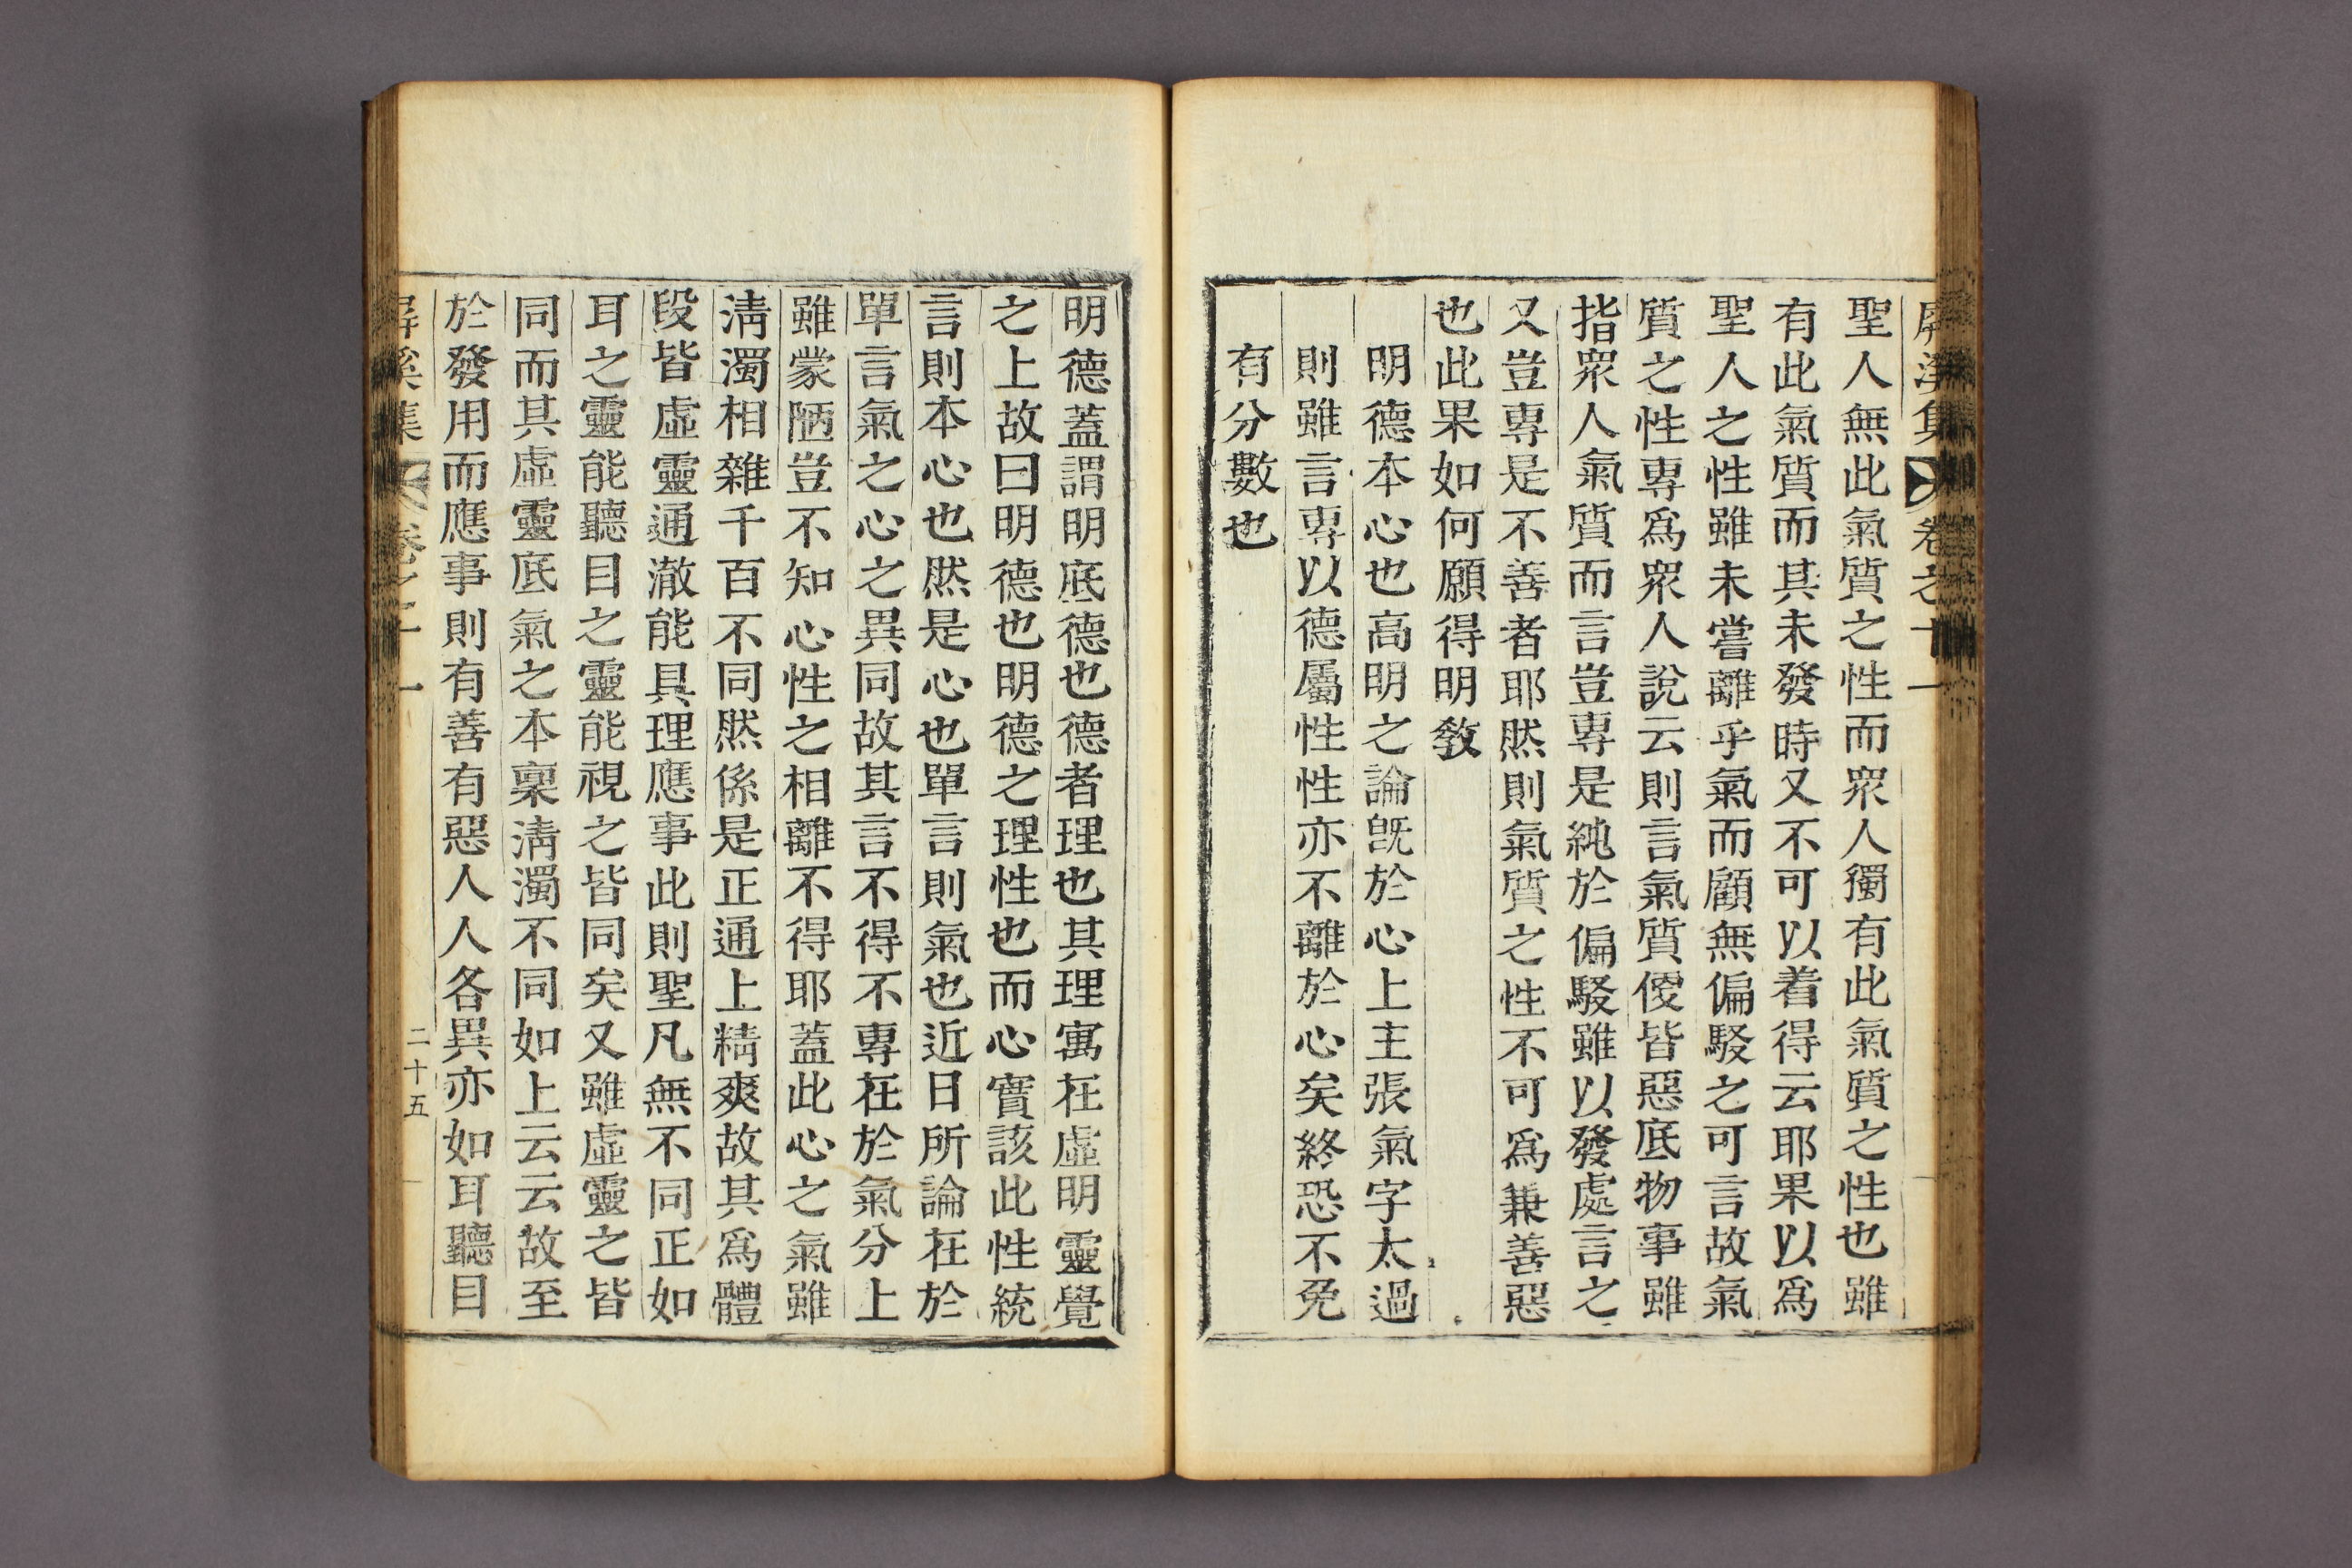 屛溪集 卷之十一
聖人無此氣質之性而衆人獨有此氣質之性也雖
有此氣質而其未發時又不可以着得云耶果以爲
聖人之性雖未嘗離乎氣而顧無偏駁之可言故氣
質之性專爲衆人說云則言氣質便皆惡底物事雖
指衆人氣質而言豈專是純於偏駁雖以發處言之
又豈專是不善者耶然則氣質之性不可爲兼善惡
也此果如何願得明敎
明德本心也高明之論旣於心上主張氣字太過
則雖言專以德屬性性亦不離於心矣終恐不免
有分數也
明德蓋謂明底德也德者理也其理寓在虛明靈覺
之上故曰明德也明德之理性也而心實該此性統
言則本心也然是心也單言則氣也近日所論在於
單言氣之心之異同故其言不得不專在於氣分上
雖蒙陋豈不知心性之相離不得耶蓋此心之氣雖
淸濁相雜千百不同然係是正通上精爽故其爲體
段皆虛靈通澈能具理應事此則聖凡無不同正如
耳之靈能聽目之靈能視之皆同矣又雖虛靈之皆
同而其虛靈底氣之本稟淸濁不同如上云云故至
於發用而應事則有善有惡人人各異亦如耳聽目
屛溪集 卷之十一 二十五